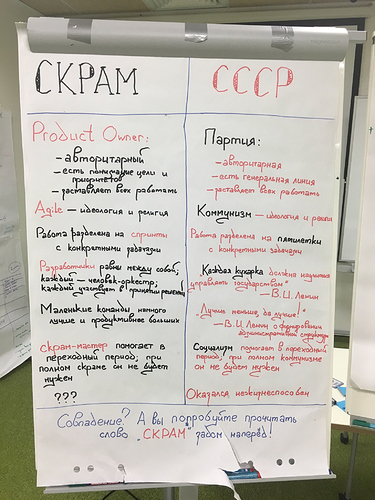 СКРАМ
Product Owner:
- авторитарный
- есть понимание цели и
приоритетов
- заставляет всех работать
Agile - идеология и религия
Работа разделена на спринты
с конкретными задачами
Разработчики равны между собой;
каждый - человек-оркестр;
каждый участвует в принятии решений
Маленькие команды намного
лучше и продуктивнее больших
Скрам-мастер помогает в
переходный период; при
полном скраме он не будет
нужен
???
СССР
Партия:
- авторитарная
- есть генеральная линия
- заставляет всех работать
Коммунизм - идеология и религия
Работа разделена на пятилетки
с конкретными задачами
"Каждая кухарка должна научиться
управлять государством"
- В.И. Ленин
"Лучше меньше, да лучше!"
- В.И. Ленин о формировании
административных структур
Социализм помогает в переходный
период; при полном коммунизме
он не будет нужен
Оказался нежизнеспособен
Совпадение? А вы попробуйте прочитать
слово "СКРАМ" задом наперёд!